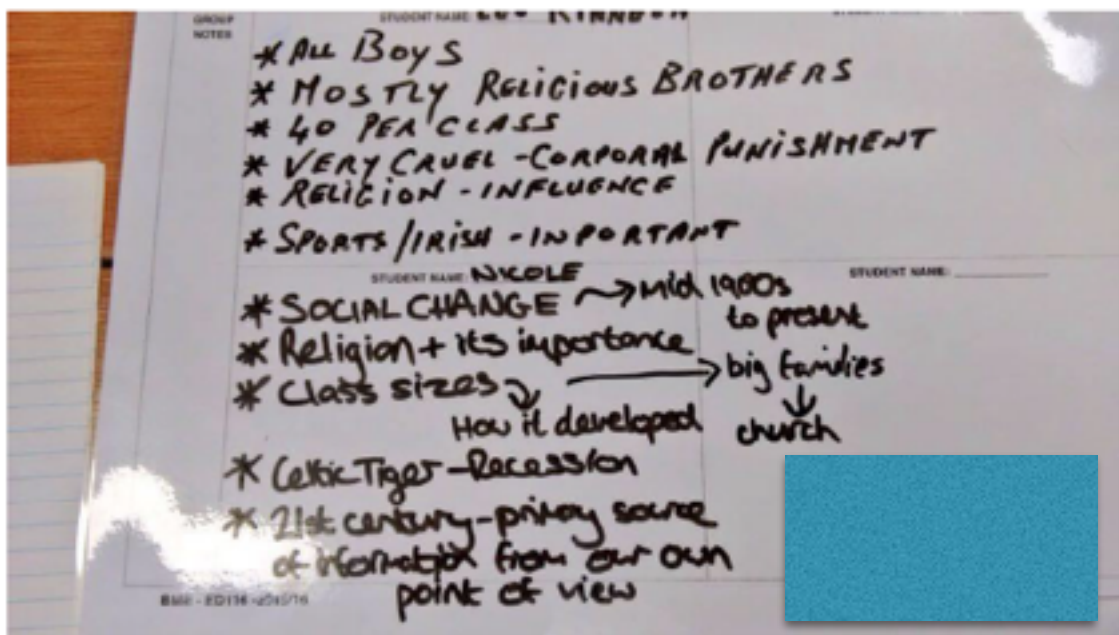 GROUP
NOTES
STUDENT NAME:
* ALL BOYS
* MOSTLY RELIGIOUS BROTHERS
* 40 PER CLASS
* VERY CRUEL - CORPORAL PUNISHMENT
* RELIGION - INFLUENCE
* SPORTS / IRISH - INPORTANT
STUDENT NAME: NICOLE
STUDENT NAME:
* SOCIAL CHANGE → Mid 1900s
to present
* Religion + its importance
* Class sizes → big families
How it developed
↓ church
* Celtic Tiger - Recession
* 21st century - primary source
of information from our own
point of view